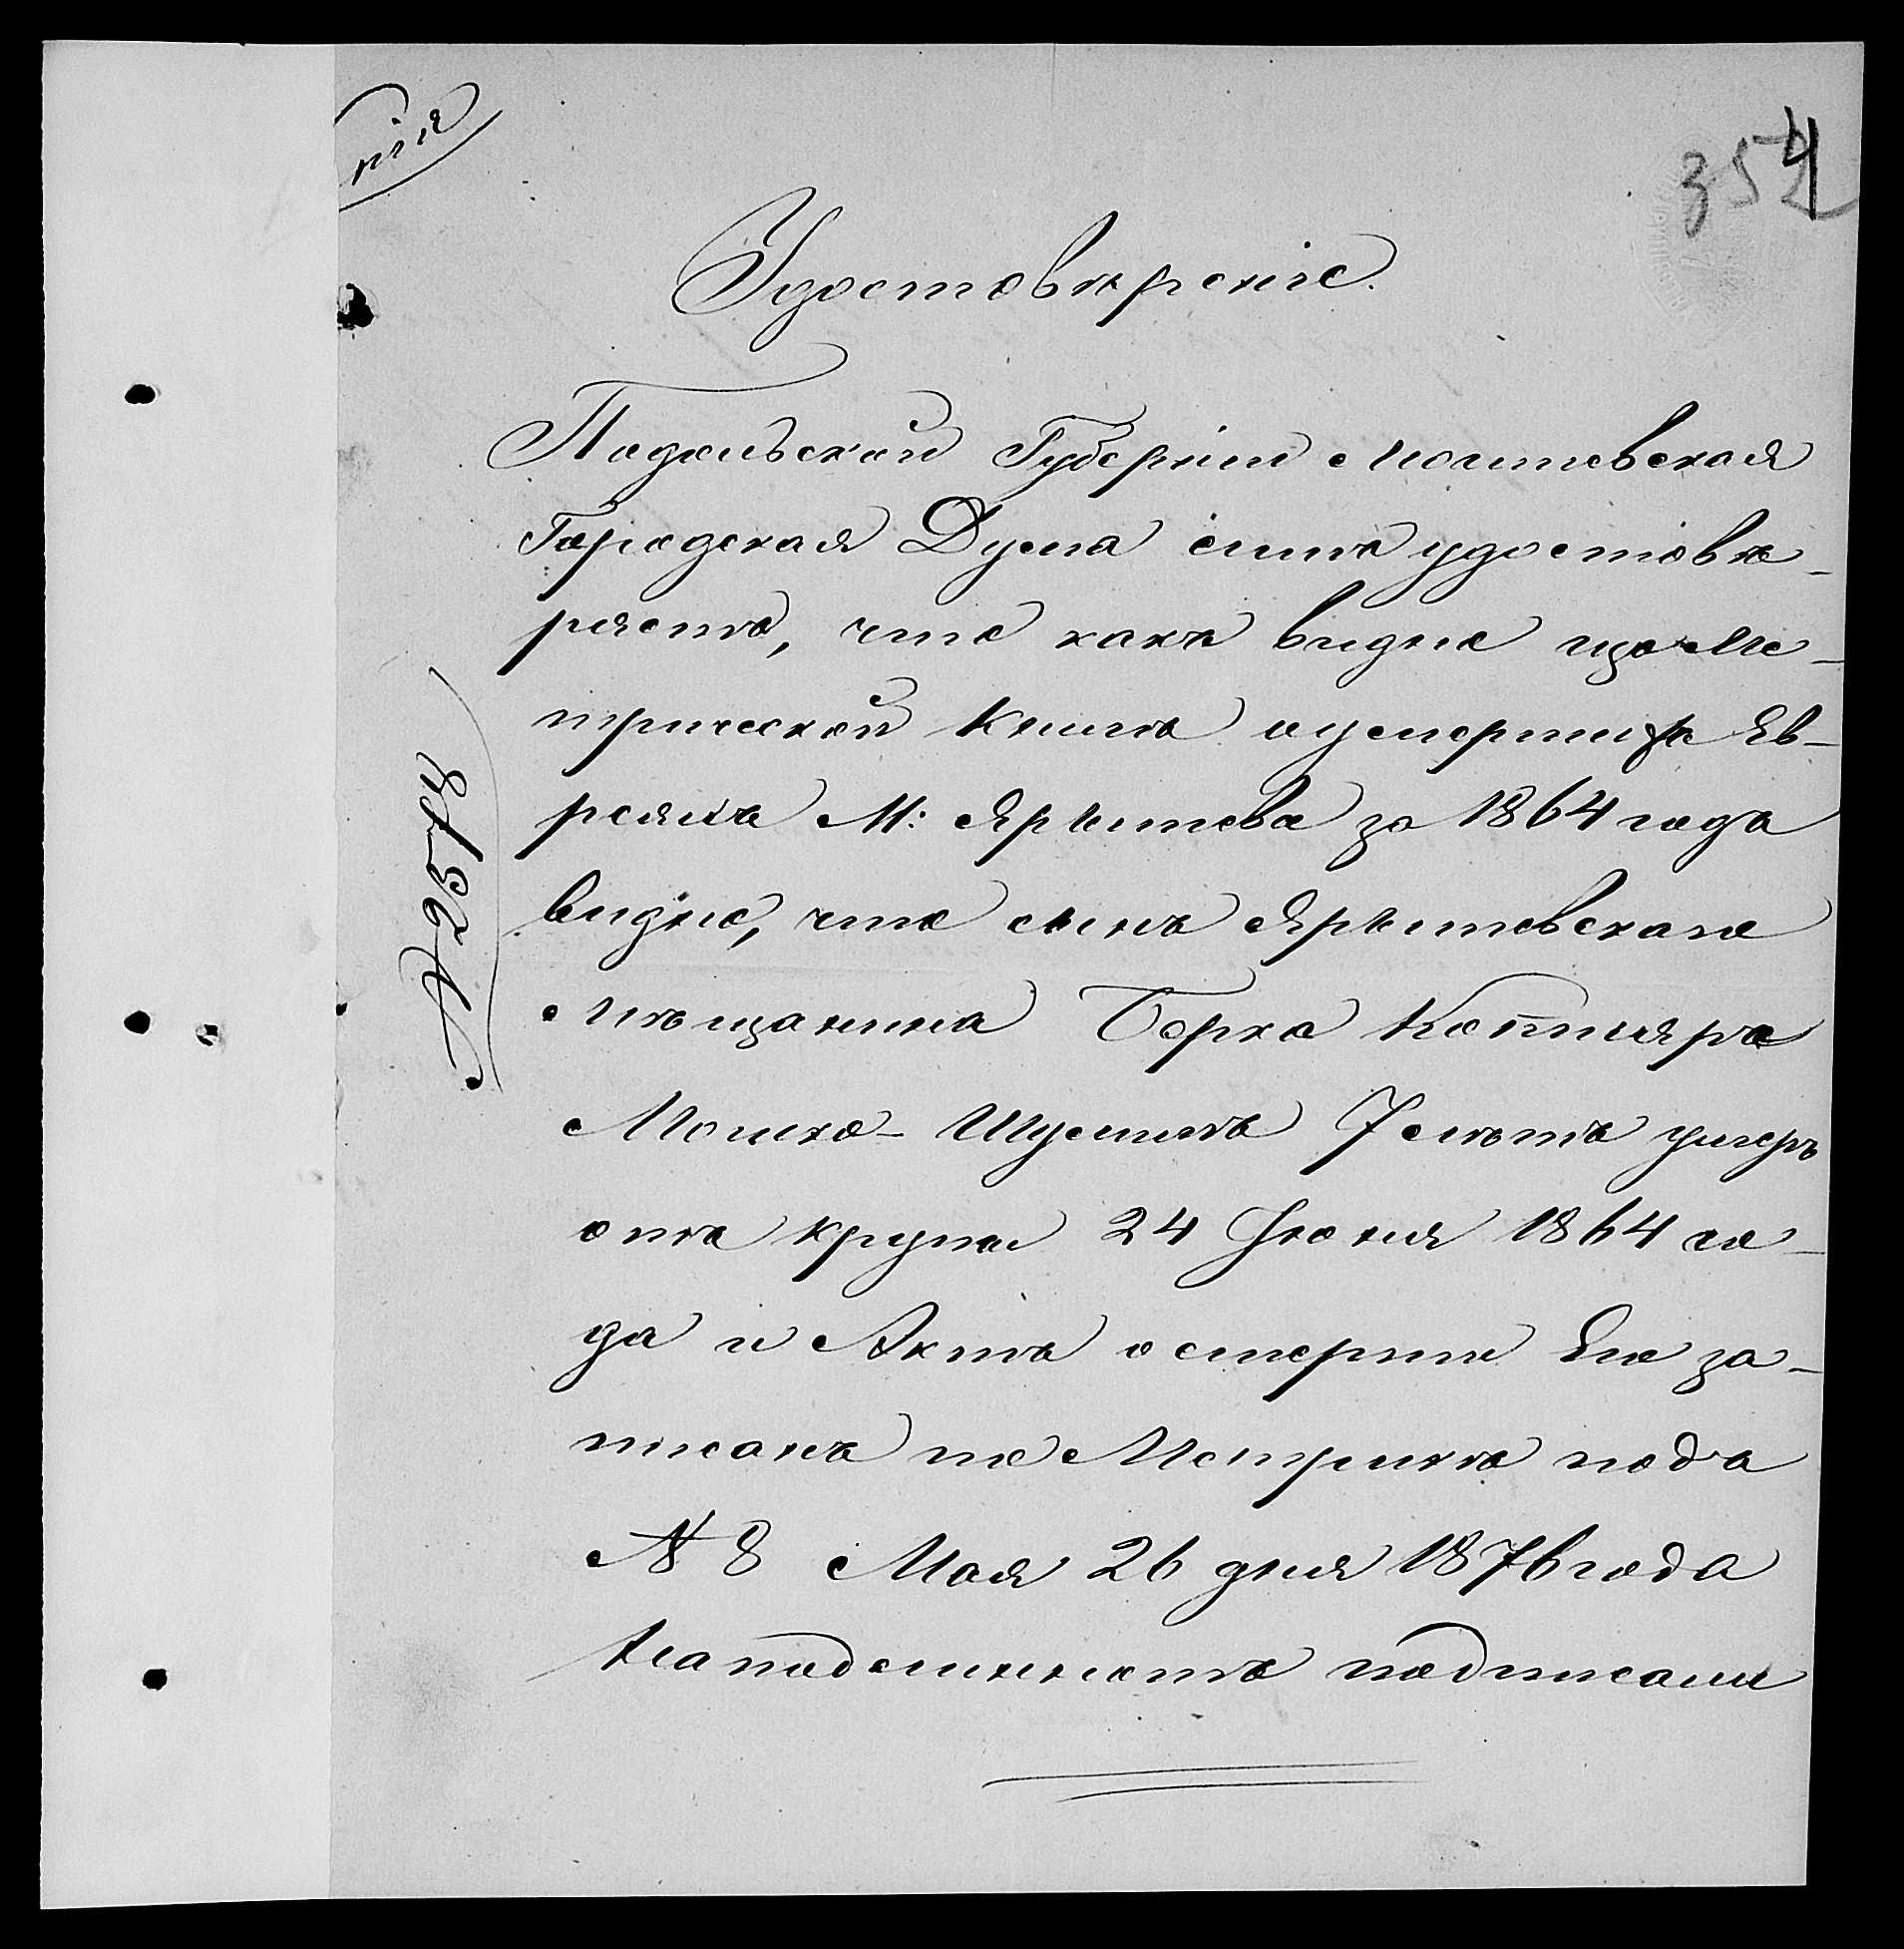 пія
354
Удостовѣреніе.
Подольской Губерніи Могилевская
Городская Дума симъ удостовѣ-
ряетъ, что какъ видно изъ Ме-
трической книги о умершихъ Ев-
реяхъ М: Ярышева за 1864 годъ
видно, что сынъ Ярышевскаго
мѣщанина Берка Котляра
Мошко-Шулимъ 7 лѣтъ умеръ
отъ крупы 24 Іюня 1864 го-
да и Актъ о смерти Его за-
писанъ по Метрикѣ подъ
№ 8 Мая 26 дня 1876 года
На подлинномъ подписали
№ 2578